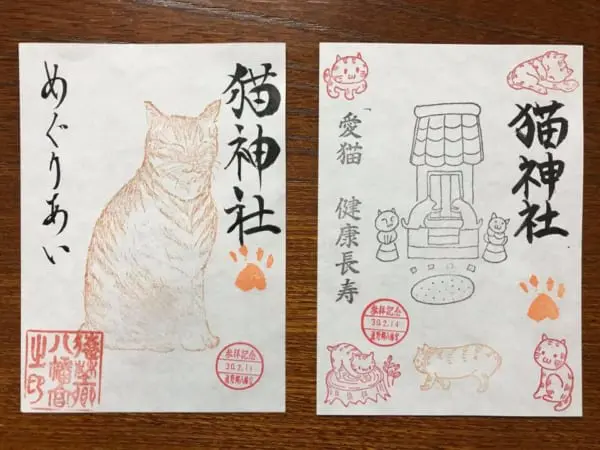 猫神社
めぐりあい
八幡宮
之印
参拝記念
30.2.11
猫神社
「愛猫 健康長寿
参拝記念
30.2.11